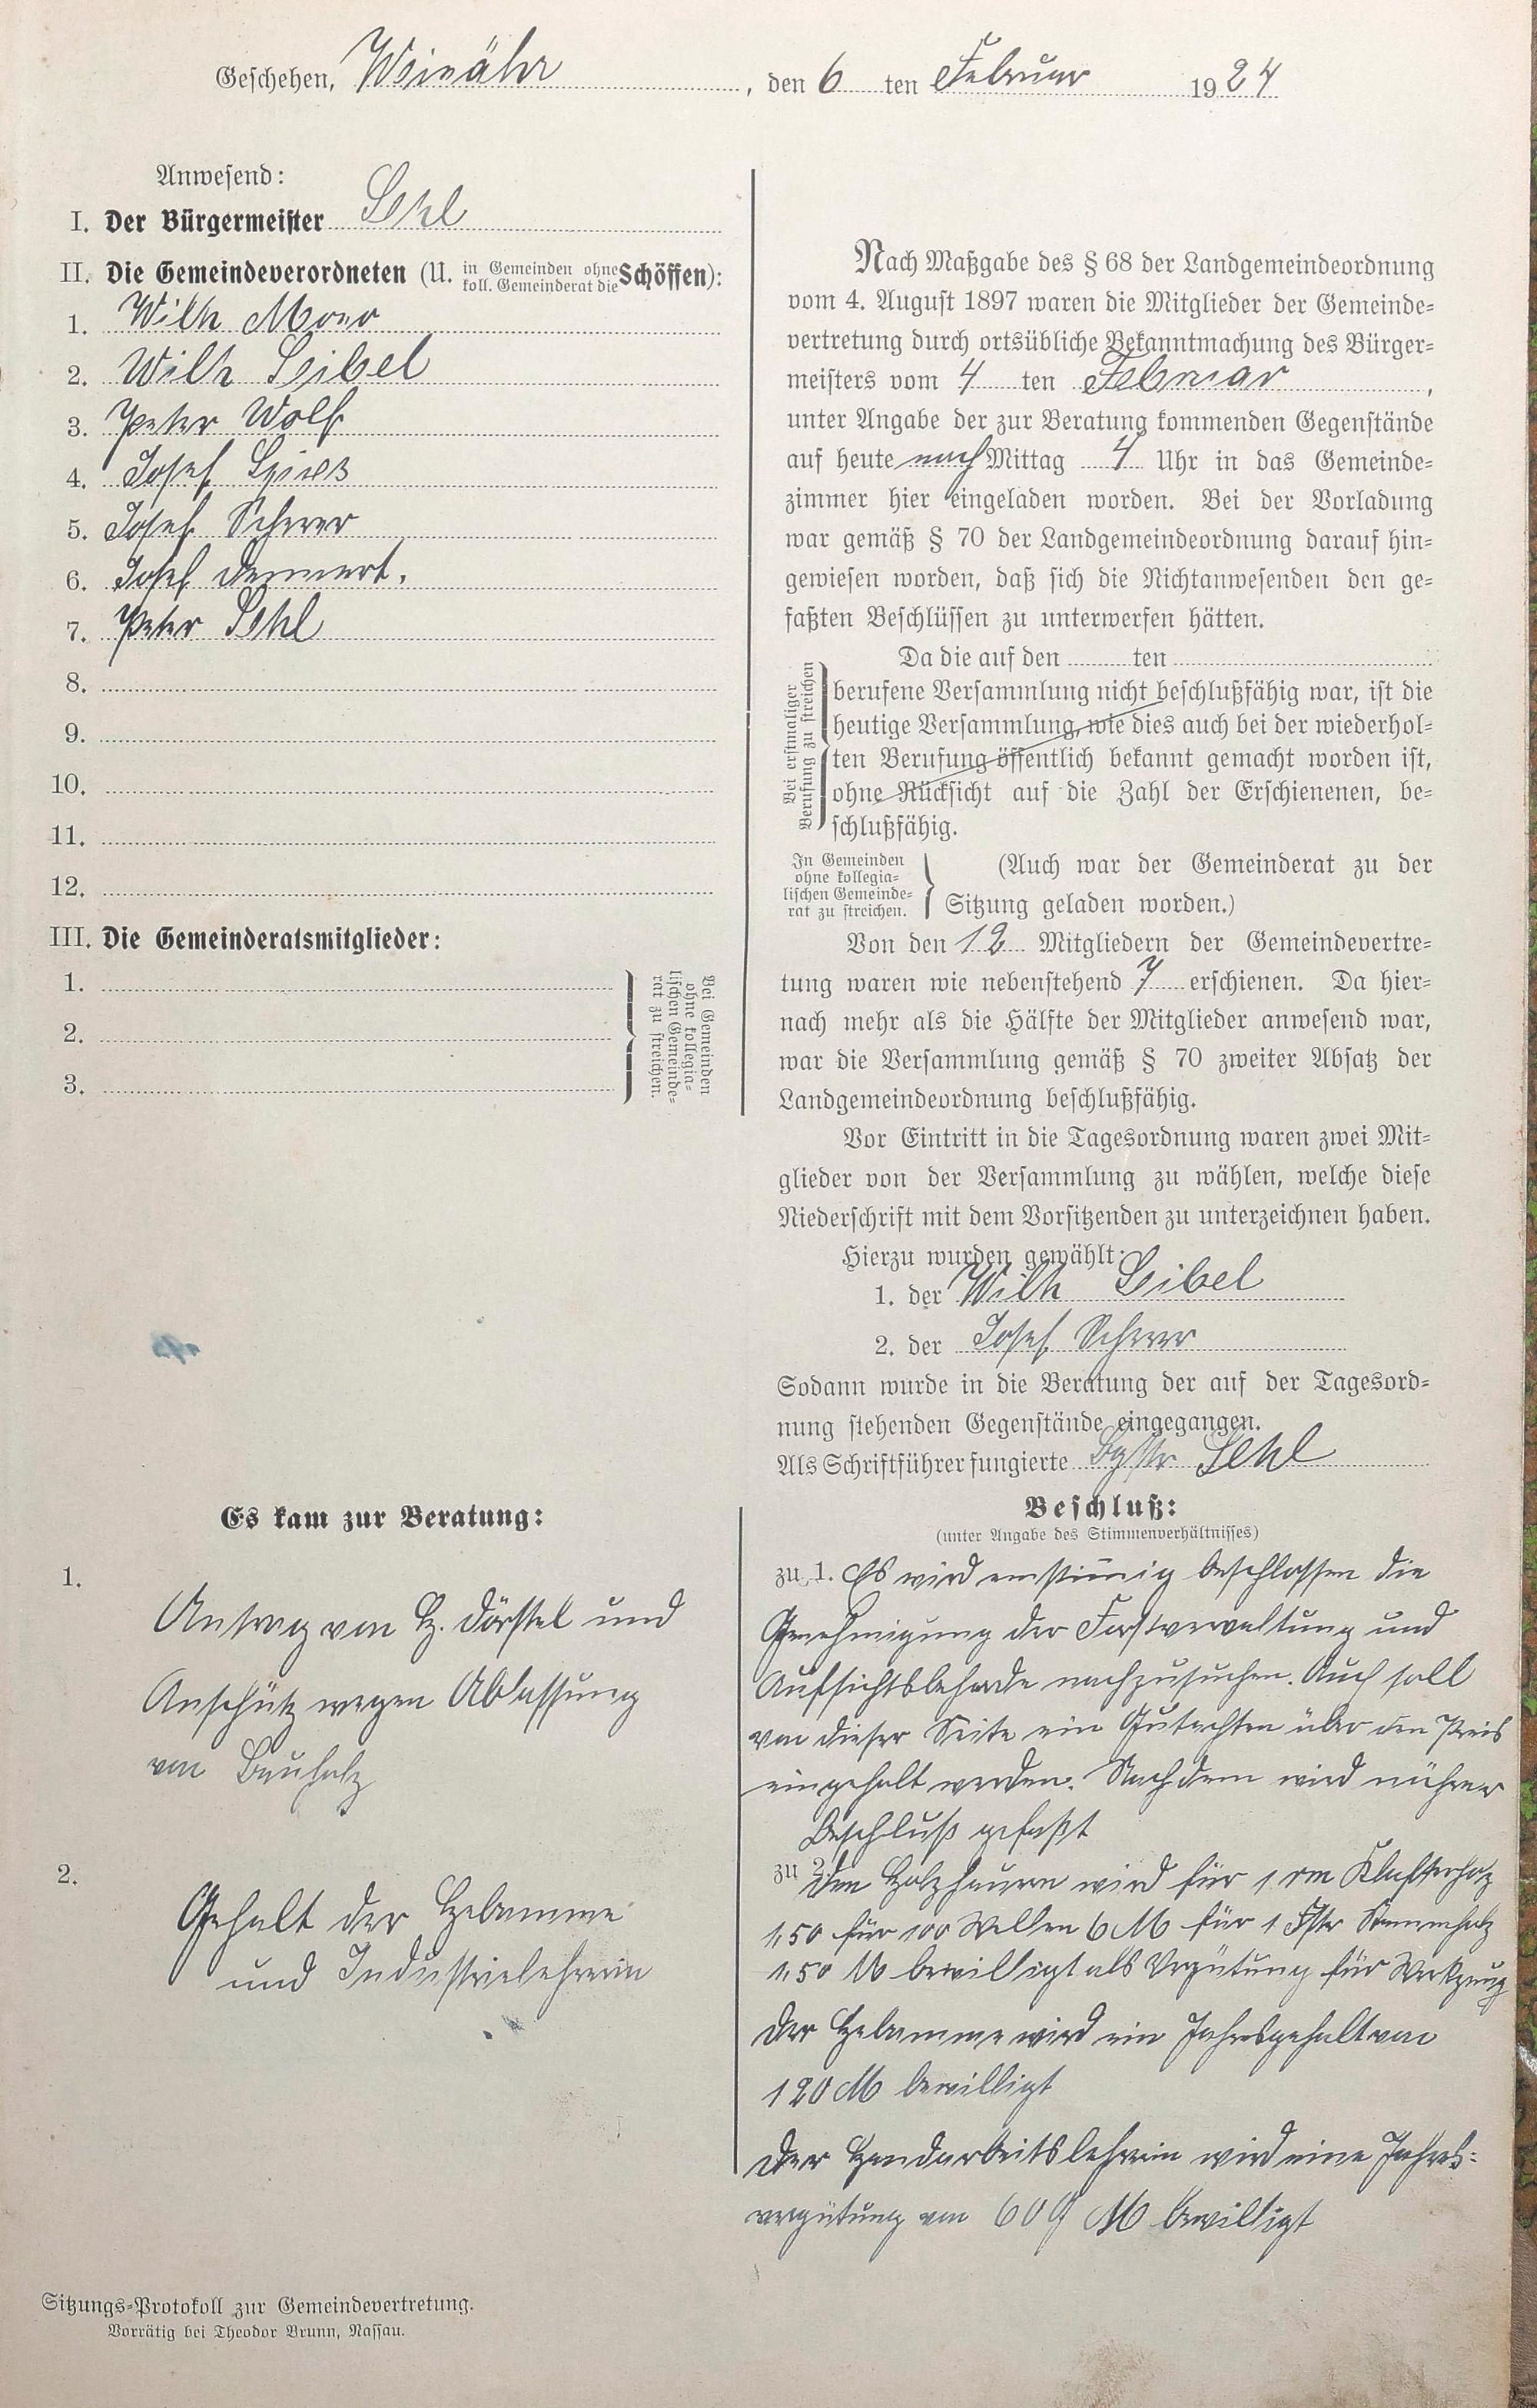 Geschehen, Weinähr, den 6 ten Februar 1924
Anwesend:
I. Der Bürgermeister Sehl
II. Die Gemeindeverordneten (U. in Gemeinden ohne koll. Gemeinderat die Schöffen):
1. Wilh
2. Wilh Seibel
3. Peter Wolf
4. Josef Spiess
5. Josef Scherer
6. Josef Dennert.
7. Peter Sehl
8.
9.
10.
11.
12.
III. Die Gemeinderatsmitglieder:
1.
2.
3.
Bei Gemeinden
ohne kollegia=
lischen Gemeinde=
rat zu streichen.
Nach Maßgabe des § 68 der Landgemeindeordnung
vom 4. August 1897 waren die Mitglieder der Gemeinde=
vertretung durch ortsübliche Bekanntmachung des Bürger=
meisters vom 4 ten Februar,
unter Angabe der zur Beratung kommenden Gegenstände
auf heute nach Mittag 4 Uhr in das Gemeinde=
zimmer hier eingeladen worden. Bei der Vorladung
war gemäß § 70 der Landgemeindeordnung darauf hin=
gewiesen worden, daß sich die Nichtanwesenden den ge=
faßten Beschlüssen zu unterwerfen hätten.
Bei erstmaliger
Berufung zu streichen
Da die auf den ten
berufene Versammlung nicht beschlußfähig war, ist die
heutige Versammlung, wie dies auch bei der wiederhol=
ten Berufung öffentlich bekannt gemacht worden ist,
ohne Rücksicht auf die Zahl der Erschienenen, be=
schlußfähig.
In Gemeinden
ohne kollegia=
lischen Gemeinde=
rat zu streichen.
(Auch war der Gemeinderat zu der
Sitzung geladen worden.)
Von den 12 Mitgliedern der Gemeindevertre=
tung waren wie nebenstehend 7 erschienen. Da hier=
nach mehr als die Hälfte der Mitglieder anwesend war,
war die Versammlung gemäß § 70 zweiter Absatz der
Landgemeindeordnung beschlußfähig.
Vor Eintritt in die Tagesordnung waren zwei Mit=
glieder von der Versammlung zu wählen, welche diese
Niederschrift mit dem Vorsitzenden zu unterzeichnen haben.
Hierzu wurden gewählt:
1. der Wilh Seibel
2. der Josef Scherer
Sodann wurde in die Beratung der auf der Tagesord=
nung stehenden Gegenstände eingegangen.
Als Schriftführer fungierte Bgstr Sehl
Es kam zur Beratung:
1.
Antrag von H. Dörstel und
Anschütz wegen Ablassung
von Bauholz
2.
Gehalt der Hebamme
und Industrielehrerin
Beschluß:
(unter Angabe des Stimmenverhältnisses)
zu 1. Es wird einstimig beschlossen die
Genehmigung der Forstverwaltung und
Aufsichtsbehörde nachzusuchen. Auch soll
von dieser Seite ein Gutachten über den Preis
eingeholt werden. Nachdem wird näherer
Beschluß gefaßt
zu 2. Den Holzhauern wird für 1 rm Klafterholz
1,50 für 100 Wellen 6 M für 1 Fstr Stammholz
1,50 M bewilligt als Vergütung für Werkzeug
Der Hebamme wird ein Jahresgehalt von
120 M bewilligt
Der Handarbeitslehrerin wird eine Jahres=
vergütung von 60 M bewilligt
Sitzungs=Protokoll zur Gemeindevertretung.
Vorrätig bei Theodor Brunn, Nassau.